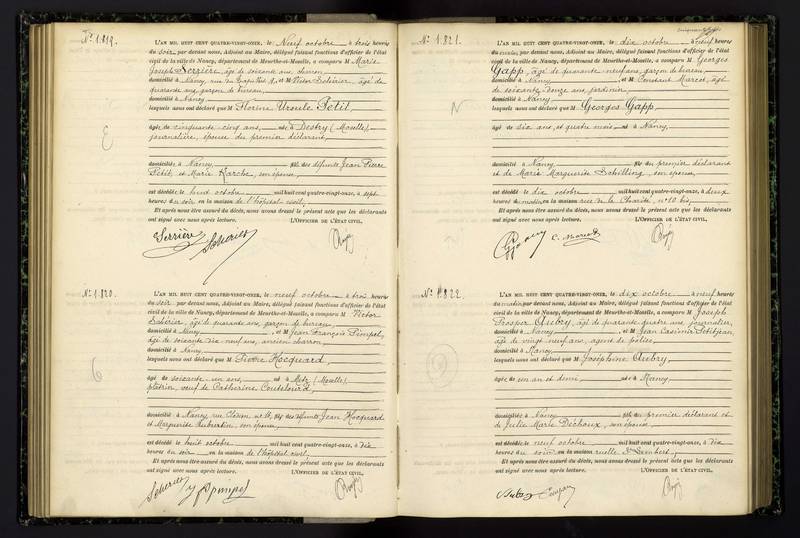 N° 1.819.
L'AN MIL HUIT CENT QUATRE-VINGT-ONZE, le Neuf octobre à trois heures
du soir, par devant nous, Adjoint au Maire, délégué faisant fonctions d'officier de l'état
civil de la ville de Nancy, département de Meurthe-et-Moselle, a comparu M Marie
Joseph Serrière, âgé de soixante ans, charron,
domicilié à Nancy, et M Victor Schérier, âgé de
quarante ans, garçon de bureau,
domicilié à Nancy
lesquels nous ont déclaré que M Florine Ursule Petit,
âgée de cinquante-cinq ans, née à Destry (Moselle),
journalière, épouse du premier déclarant,
domiciliée à Nancy, fille des défunts Jean Pierre
Petit, et Marie Karche, son épouse,
est décédée le huit octobre mil huit cent quatre-vingt-onze, à sept
heures du soir en la maison de l'hôpital civil,
Et après nous être assuré du décès, nous avons dressé le présent acte que les déclarants
ont signé avec nous après lecture. L'OFFICIER DE L'ÉTAT CIVIL,
Serrière Scherier
N° 1.820.
L'AN MIL HUIT CENT QUATRE-VINGT-ONZE, le neuf octobre à trois heures
du soir par devant nous, Adjoint au Maire, délégué faisant fonctions d'officier de l'état
civil de la ville de Nancy, département de Meurthe-et-Moselle, a comparu M Victor
Schérier, âgé de quarante ans, garçon de bureau,
domicilié à Nancy, et M Jean François Pimpel,
âgé de soixante dix-neuf ans, ancien charron,
domicilié à Nancy
lesquels nous ont déclaré que M Pierre Hocquard,
âgé de soixante-un ans, né à Metz (Moselle),
plâtrier, veuf de Catherine
domicilié à Nancy, rue fils des défunts Jean Hocquard
et Marguerite Auburtin, son épouse,
est décédé le huit octobre mil huit cent quatre-vingt-onze, à dix
heures du soir en la maison de l'hôpital civil,
Et après nous être assuré du décès, nous avons dressé le présent acte que les déclarants
ont signé avec nous après lecture. L'OFFICIER DE L'ÉTAT CIVIL,
Scherier
N° 1.821.
L'AN MIL HUIT CENT QUATRE-VINGT-ONZE, le dix octobre à neuf heures
du matin, par devant nous, Adjoint au Maire, délégué faisant fonctions d'officier de l'état
civil de la ville de Nancy, département de Meurthe-et-Moselle, a comparu M Georges
Gapp, âgé de quarante neuf ans, garçon de bureau,
domicilié à Nancy et M Constant Marcot, âgé
de soixante-douze ans, jardinier,
domicilié à Nancy
lesquels nous ont déclaré que M Georges Gapp,
âgé de dix ans, et quatre mois né à Nancy,
domicilié à Nancy fils du premier déclarant
et de Marie Marguerite Schilling, son épouse,
est décédé le dix octobre mil huit cent quatre-vingt-onze, à deux
heures du matin en la maison rue de la Charité, n° 10 bis,
Et après nous être assuré du décès, nous avons dressé le présent acte que les déclarants
ont signé avec nous après lecture. L'OFFICIER DE L'ÉTAT CIVIL,
N° 1.822.
L'AN MIL HUIT CENT QUATRE-VINGT-ONZE, le dix octobre à neuf heures
du matin par devant nous, Adjoint au Maire, délégué faisant fonctions d'officier de l'état
civil de la ville de Nancy, département de Meurthe-et-Moselle, a comparu M Joseph
Prosper Aubry, âgé de quarante quatre ans, journalier,
domicilié à Nancy et M Jean Casimir Petitjean,
âgé de vingt neuf ans, agent de police,
domicilié à Nancy
lesquels nous ont déclaré que M Joséphine Aubry,
âgée de un an et demi née à Nancy,
domiciliée à Nancy fille du premier déclarant et
de Julie Marie Déchoux, son épouse,
est décédée le neuf octobre mil huit cent quatre-vingt-onze, à dix
heures du soir en la maison ruelle
Et après nous être assuré du décès, nous avons dressé le présent acte que les déclarants
ont signé avec nous après lecture. L'OFFICIER DE L'ÉTAT CIVIL,
Aubry